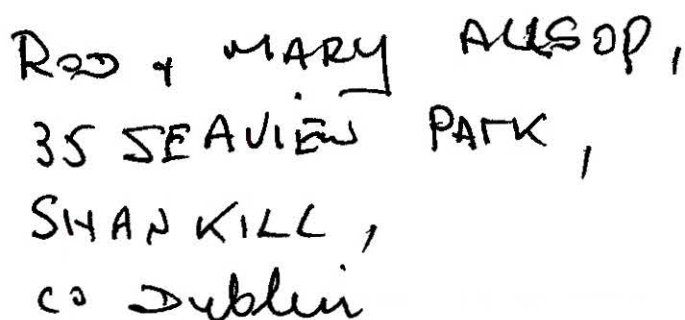 ROD + MARY ALLSOP,
35 SEAVIEW PARK,
SHANKILL,
CO Dublin